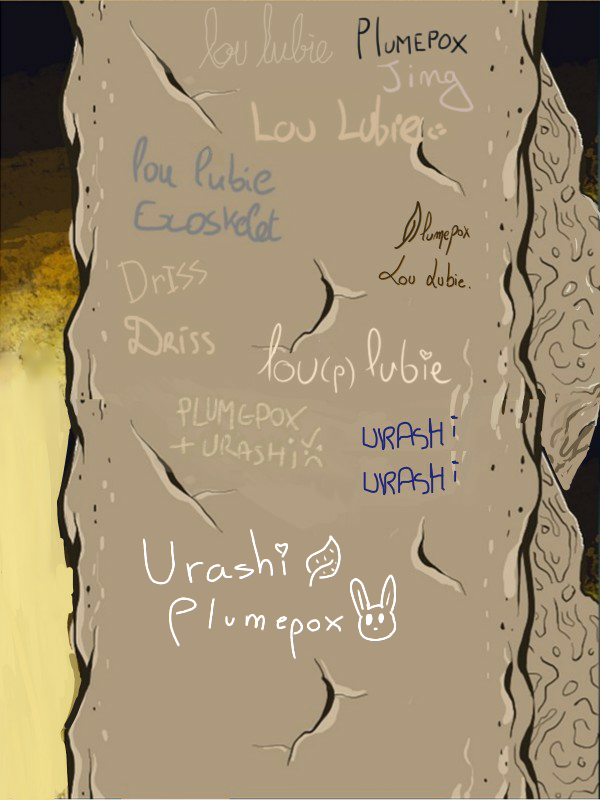 lou lubie
PLUMEPOX
Jing
Lou Lubie
lou lubie
Exoskelet
Plumepox
Lou Lubie.
Driss
Driss
lou(p) lubie
PLUMEPOX
+ URASHi
URASHi
URASHi
Urashi
Plumepox